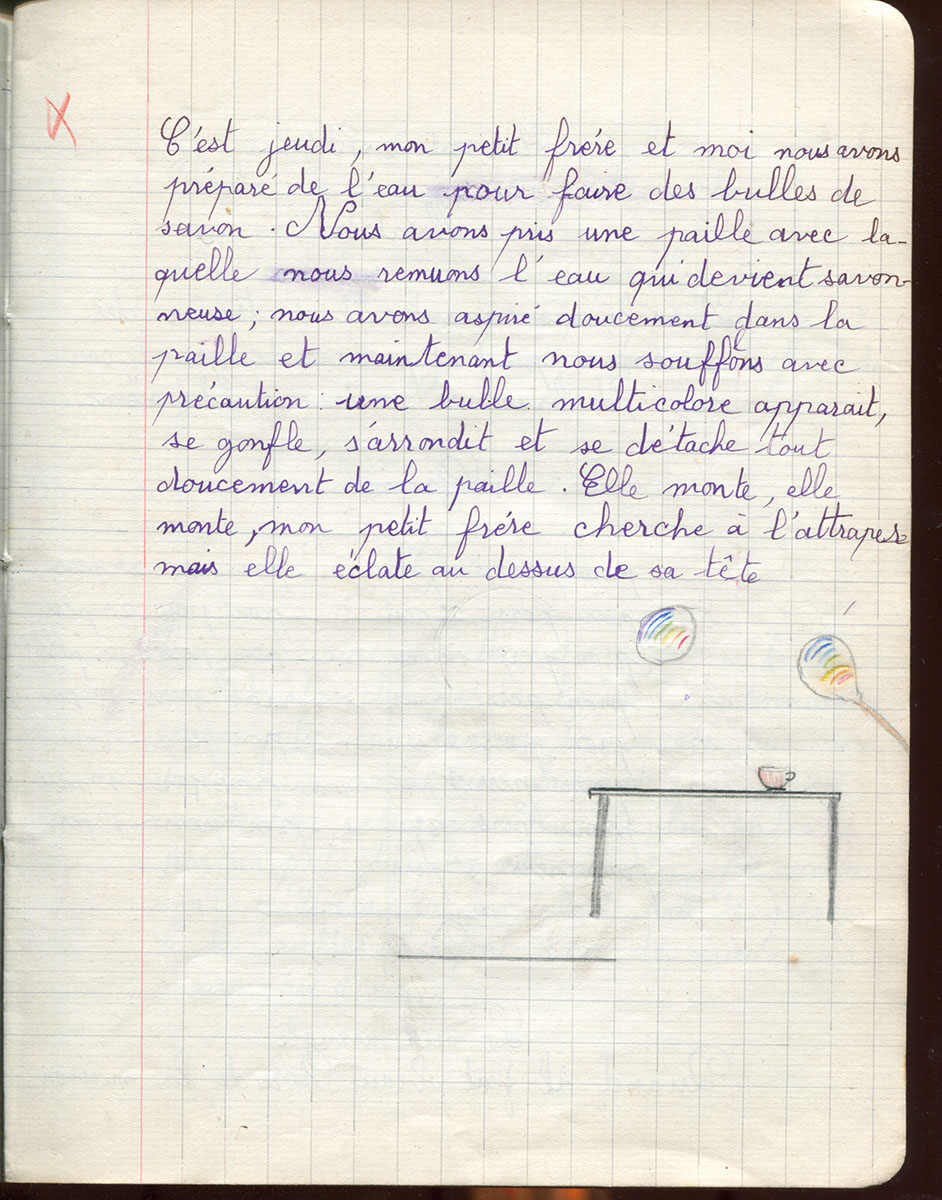 C'est jeudi, mon petit frére et moi nous avons
préparé de l'eau pour faire des bulles de
savon. Nous avons pris une paille avec la-
quelle nous remuons l'eau qui devient savon-
neuse; nous avons aspiré doucement dans la
paille et maintenant nous soufflons avec
précaution: une bulle multicolore apparait,
se gonfle, s'arrondit et se détache tout
doucement de la paille. Elle monte, elle
monte, mon petit frére cherche à l'attraper
mais elle éclate au dessus de sa tête